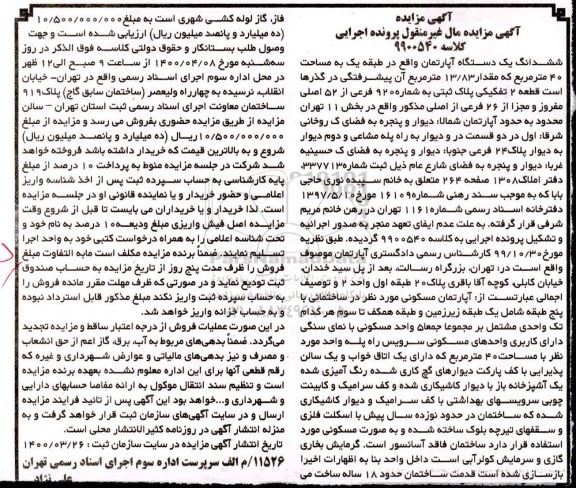 آگهی مزایده
آگهی مزایده مال غیرمنقول پرونده اجرایی
کلاسه ۹۹۰۰۵۴۰
ششدانگ یک دستگاه آپارتمان واقع در طبقه یک به مساحت
۴۰ مترمربع که مقدار ۱۳/۸۳ مترمربع آن پیشرفتگی در گذرها
است قطعه ۲ تفکیکی پلاک ثبتی به شماره ۹۲۰ فرعی از ۵۲ اصلی
مفروز و مجزا از ۲۶ فرعی از اصلی مذکور واقع در بخش ۱۱ تهران
محدود به حدود آپارتمان شمالا: دیوار و پنجره به فضای ک روخانی
شرقا: اول در دو قسمت در و دیوار به راه پله مشاعی و دوم دیوار
به دیوار پلاک ۲۴ فرعی جنوبا: دیوار و پنجره به فضای ک حسینیه
غربا: دیوار و پنجره به فضای شارع عام ذیل ثبت شماره ۳۳۷۷۱۳
دفتر املاک ۱۳۰۸ صفحه ۲۶۴ متعلق به خانم سپیده نوری حاجی
بابا که به موجب سند رهنی شماره ۱۶۱۰۹ مورخ ۱۳۹۷/۵/۱۰
دفترخانه اسناد رسمی شماره ۱۱۶۱ تهران در رهن خانم مریم
شرفی قرار گرفته. به علت عدم ایفای تعهد منجر به صدور اجرائیه
و تشکیل پرونده اجرایی به کلاسه ۹۹۰۰۵۴۰ گردیده. طبق نظریه
مورخ ۹۹/۱۰/۳۰ کارشناس رسمی دادگستری آپارتمان موصوف
واقع است در: تهران، بزرگراه رسالت، بعد از پل سید خندان،
خیابان کابلی، کوچه آقا باقری پلاک ۲۰ طبقه اول واحد ۲ و توصیف
اجمالی عبارتست از: آپارتمان مسکونی مورد نظر در ساختمانی با
پنج طبقه شامل یک طبقه زیرزمین و طبقه همکف تا سوم هر کدام
تک واحدی مشتمل بر مجموعا جمعاً ۵ واحد مسکونی با نمای سنگی
دارای کاربری واحدهای مسکونی سرویس راه پله واحد مورد
نظر با مساحت ۴۰ مترمربع که دارای یک اتاق خواب و یک سالن
پذیرایی با کف پارکت دیوارهای گچ کاری شده رنگ آمیزی شده
یک آشپزخانه باز با دیوار کاشیکاری شده و کف سرامیک و کابینت
چوبی سرویسهای بهداشتی با کف سرامیک و دیوار کاشیکاری
شده که ساختمان در حدود نوزده سال پیش با اسکلت فلزی
و سقفهای تیرچه بلوک ساخته شده و به صورت مسکونی مورد
استفاده قرار دارد ساختمان فاقد آسانسور است. گرمایش بخاری
گازی و سرمایش کولرآبی است داخل واحد بنا به اظهارات اخیرا
بازسازی شده است قدمت ساختمان حدود ۱۸ ساله ساخت می
فاز، گاز لوله کشی شهری است به مبلغ ۱۰/۵۰۰/۰۰۰/۰۰۰
(ده میلیارد و پانصد میلیون ریال) ارزیابی شده است و جهت
وصول طلب بستانکار و حقوق دولتی کلاسه فوق الذکر در روز
سه‌شنبه مورخ ۱۴۰۰/۰۴/۰۸ از ساعت ۹ صبح الی ۱۲ ظهر
در محل اداره سوم اجرای اسناد رسمی واقع در تهران- خیابان
انقلاب، نرسیده به چهارراه ولیعصر (ساختمان سابق گاج) پلاک ۹۱۹
ساختمان معاونت اجرای اسناد رسمی ثبت استان تهران – سالن
مزایده از طریق مزایده حضوری بفروش می رسد و مزایده از مبلغ
۱۰/۵۰۰/۰۰۰/۰۰۰ ریال (ده میلیارد و پانصد میلیون ریال)
شروع و به بالاترین قیمت که خریدار داشته باشد فروخته خواهد
شد شرکت در جلسه مزایده منوط به پرداخت ۱۰ درصد از مبلغ
پایه کارشناسی به حساب سپرده ثبت پس از اخذ شناسه واریز
اعلامی و حضور خریدار و یا نماینده قانونی او در جلسه مزایده
است. لذا خریدار و یا خریداران می بایست تا قبل از شروع وقت
مزایده اصل فیش واریزی مبلغ ودیعه ۱۰ درصد به نام خود و
تحت شناسه اعلامی را به همراه درخواست کتبی خود به واحد اجرا
تسلیم نمایند. ضمناً برنده مزایده مکلف است مابه التفاوت مبلغ
فروش را ظرف مدت پنج روز از تاریخ مزایده به حساب صندوق
ثبت تودیع نماید و در صورتی که ظرف مهلت مقرر مانده فروش را
به حساب سپرده ثبت واریز نکند مبلغ مذکور قابل استرداد نبوده
و به حساب خزانه واریز خواهد شد.
در این صورت عملیات فروش از درجه اعتبار ساقط و مزایده تجدید
می‌گردد. ضمناً بدهی‌های مربوط به آب، برق، گاز اعم از حق انشعاب
و مصرف و نیز بدهی‌های مالیاتی و عوارض شهرداری و غیره که
رقم قطعی آنها برای این اداره معلوم نشده بعهده برنده مزایده
است و تنظیم سند انتقال موکول به ارائه مفاصا حسابهای دارایی
و شهرداری و...خواهد بود این آگهی پس از تائید فرایند مزایده
ارسال و در سایت آگهی‌های سازمان ثبت قرار خواهد گرفت و به
منزله انتشار آگهی در روزنامه کثیرالانتشار محلی است.
تاریخ انتشار آگهی مزایده در سایت سازمان ثبت : ۱۴۰۰/۰۳/۲۶
۱۱۵۲۶/م الف سرپرست اداره سوم اجرای اسناد رسمی تهران
علی نژاد